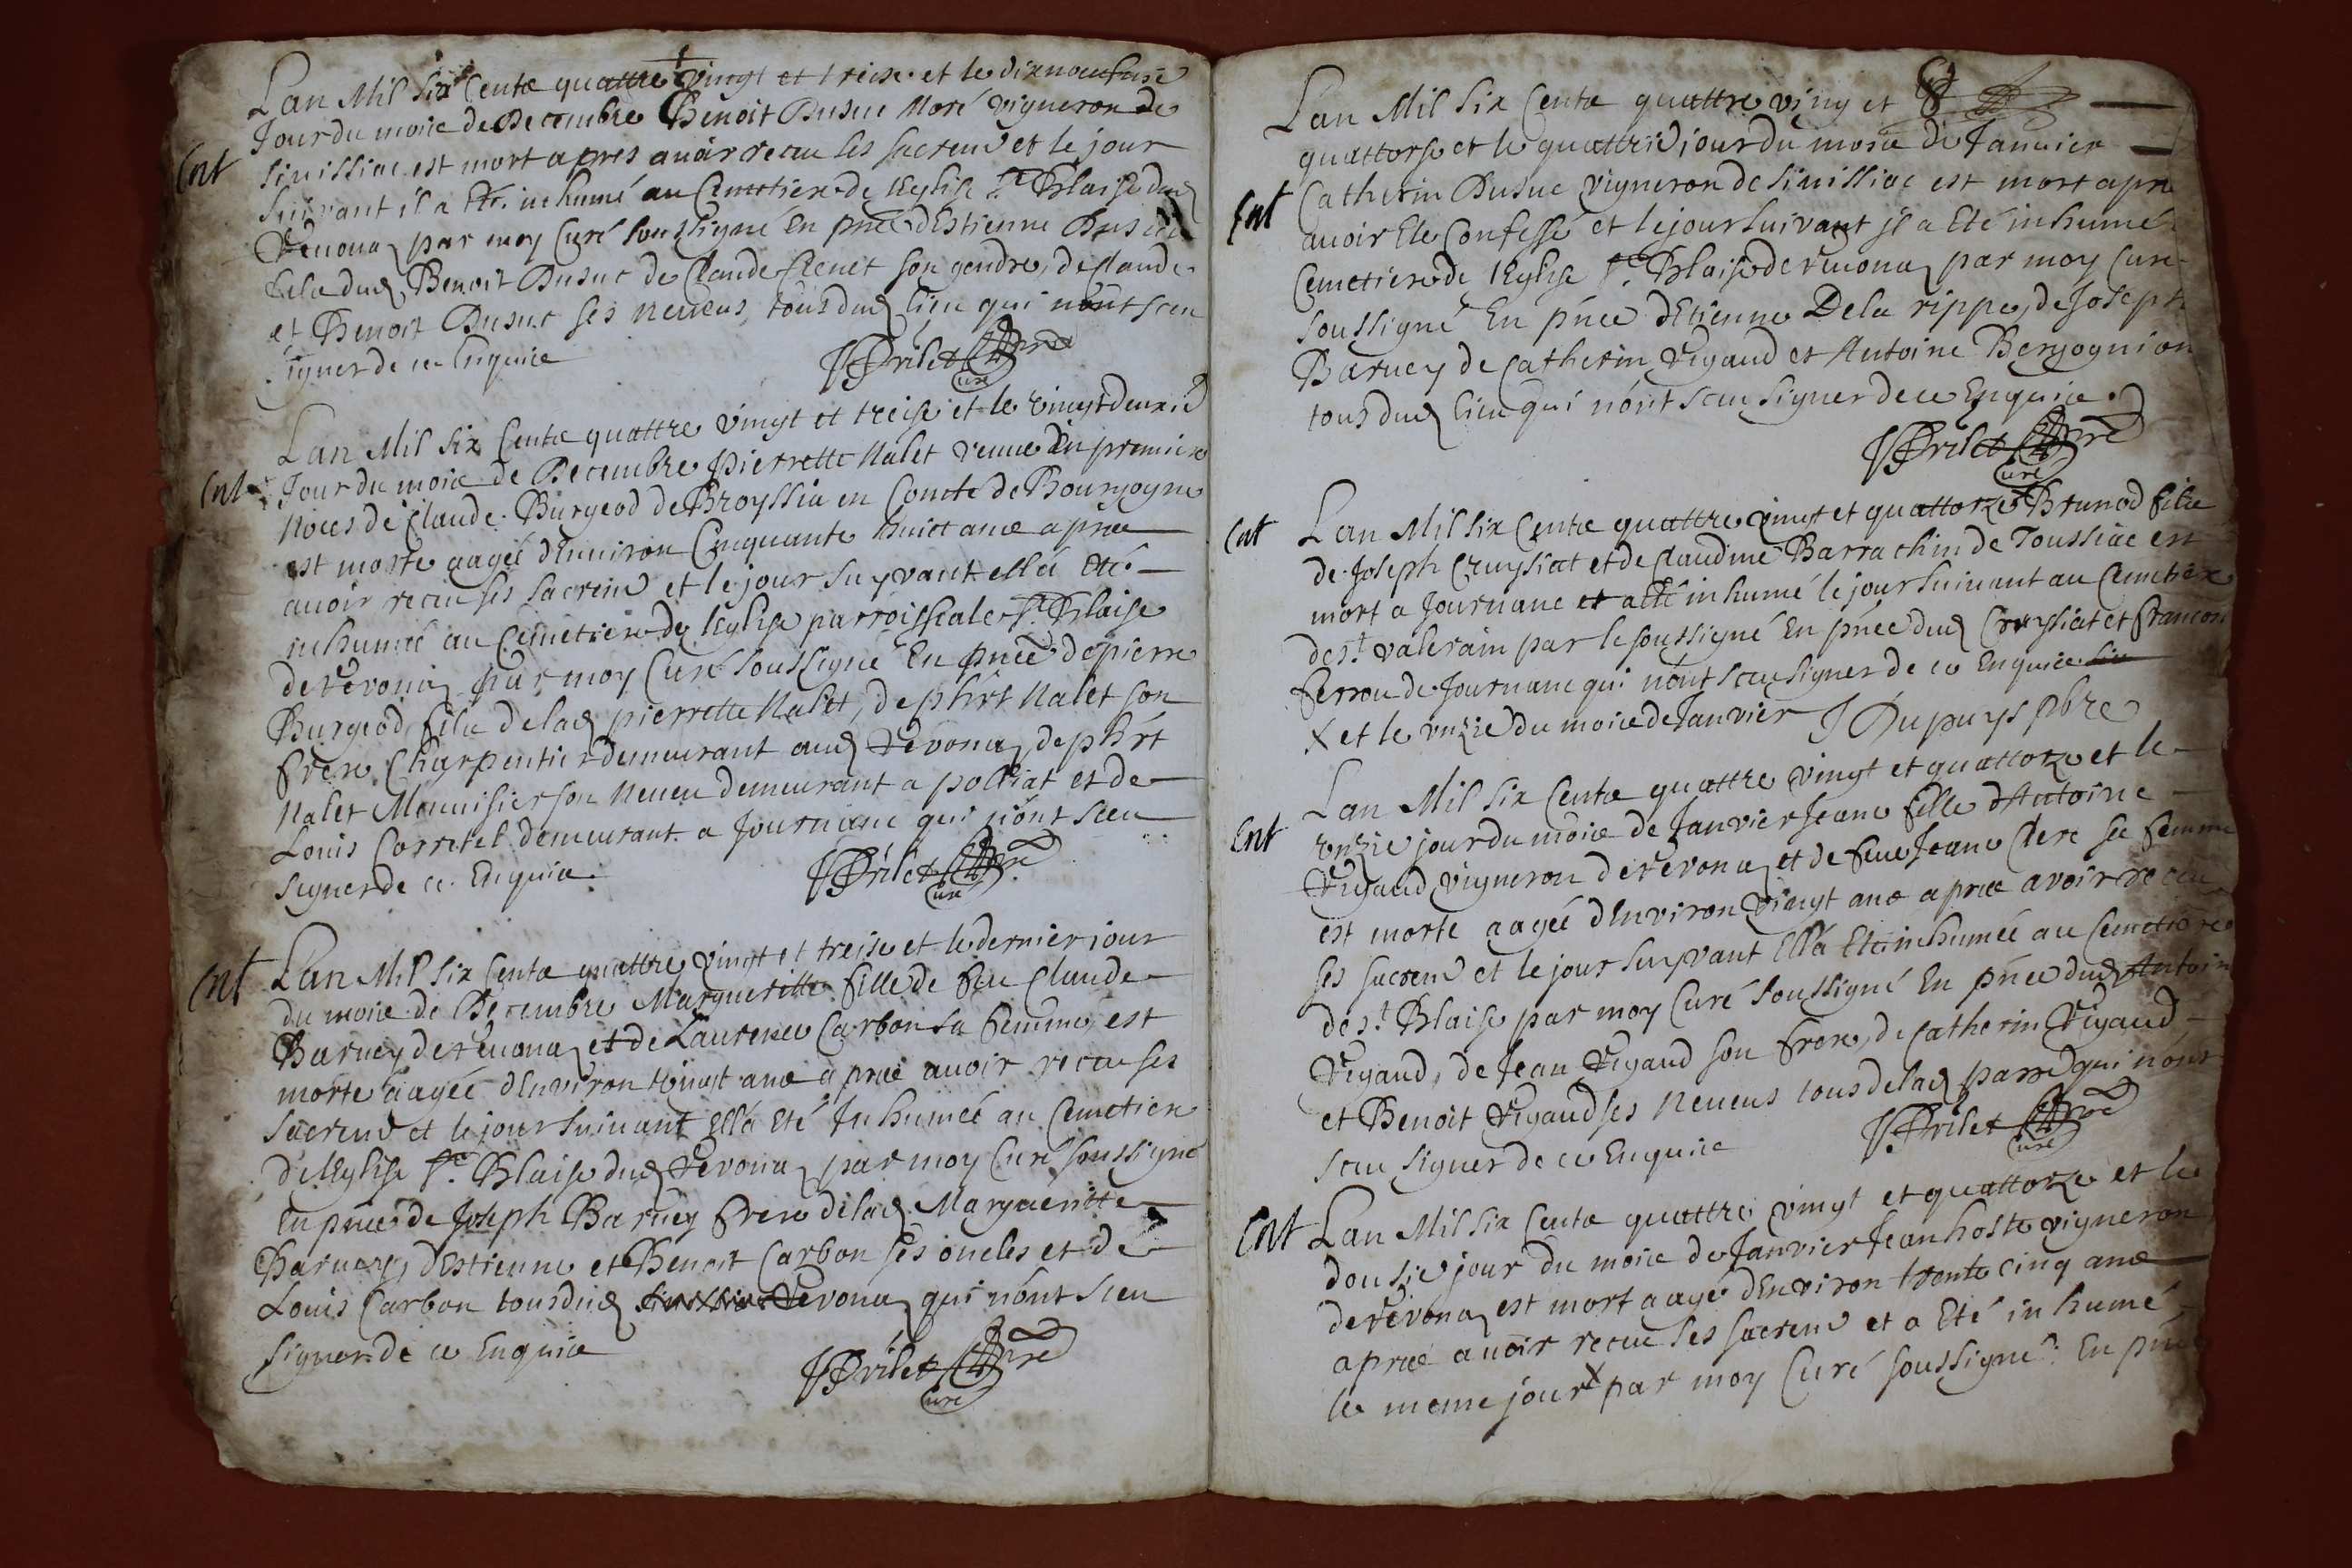 Lan Mil six Cents quattre vingt et treise et le dixneufuie
Jour du mois de Decembre Benoit Dusuc Moré vigneron de
Ent
Siuissiac est mort apres auoir receu ses sacremts et le jour
suivant il a Eté inhumé au Cemetiere de lEglise St Blaise dud
Reuonaz par moy Curé soussigné En pnce dEstienne Dusuc
fils dud Benoit Dusuc de Claude Clenet son gendre, de Claude
et Benoit Dusuc ses neueus, tous dud lieu qui nónt sceu
signer de ce Enquis
JPrilet pre
Curé
Lan Mil six Cents quattre vingt et treise et le vingtdeuxie
Ent
Jour du mois de Decembre pierrette Nalet veuue En premiere
Noces de Claude Burgeod de Broyssia en Comté de Bourgogne
est morte aagée dEnuiron Cinquante huict ans apres
auoir receu ses sacremts et le jour suyvant ellá Eté
inhumée au Cemetiere de lEglise parroissiale St Blaise
de Revonaz par moy Curé soussigné En pnce de pierre
Burgeod fils de lad pierrette Nalet, de phirt Nalet son
frere Charpentier demeurant aud Revonaz, de phirt
Nalet Menuisier son neueu demeurant a polliat et de
Louis Corretel demeurant a Journanc qui nónt sceu
signer de ce Enquis
JPrilet pre
Curé
Ent
Lan Mil six Cents quattre vingt et treise et le dernier jour
du mois de Decembre Margueritte fille de feu Claude
Baruey de Reuonaz et de Laurence Carbon sa femme, est
morte aagée dEnviron vingt ans apres auoir receu ses
sacremts et le jour suiuant Ellá Eté Inhumée au Cemetiere
de lEglise St Blaise dud Revonaz par moy Curé soussigné
En pnce de Joseph Baruey frere de lad Margueritte
Baruey, dEstienne et Benoit Carbon ses oncles et de
Louis Carbon tous dud Revonaz qui nónt sceu
signer de ce Enquis
JPrilet pre
Curé
Lan Mil six Cents quattre ving et
quattorse et le quattrie jour du mois de Januier
Ent
Catherin Dusuc vigneron de Siuissiac est mort apres
auoir Ete Confessé et le jour suivant il a Eté inhumé
Cemetiere de lEglise St Blaise de Reuonaz par moy Curé
soussigné En pnce dEtienne Dela rippe, de Joseph
Baruey de Catherin Vigaud et Antoine Bergognion
tous dud lieu qui nónt sceu signer de ce Enquis
JPrilet pre
Curé
Ent
Lan Mil six Cents quattre vingt et quattorze X Brunod fils
de Joseph Cruysiat et de Claudine Barrachin de Toussiac est
mort a Journanc et a été inhumé le jour suiuant au Cemetiere
de St valerain par le soussigné En pnce dud Cruysiat et francois
ferrou de Journanc qui nónt sceu signer de ce Enquis
X et le vnzie du mois de Janvier J Dupuys pbre
Lan Mil six Cents quattre vingt et quattorze et le
Ent
vnzie jour du mois de Janvier Jeane fille dAntoine
Vigaud vigneron de Revonaz et de feue Jeane Clerc sa femme
est morte aagée dEnviron vingt ans apres avoir receu
ses sacremts et le jour suyvant Ellá Eté inhumée au Cemetiere
de St Blaise par moy Curé soussigné En pnce dud Antoine
Vigaud, de Jean Vigaud son frere, de Catherin Vigaud
et Benoit Vigaud ses neueus tous de lad parre qui nónt
sceu signer de ce Enquis
JPrilet pre
Curé
Ent
Lan Mil six Cents quattre vingt et quattorze et le
dousie jour du mois de Janvier Jean hoste vigneron
de Revonaz est mort aagé dEnviron trente cinq ans
apres auoir receu ses sacremts et a Eté inhumé
le meme jour X par moy Curé soussigné En pnce